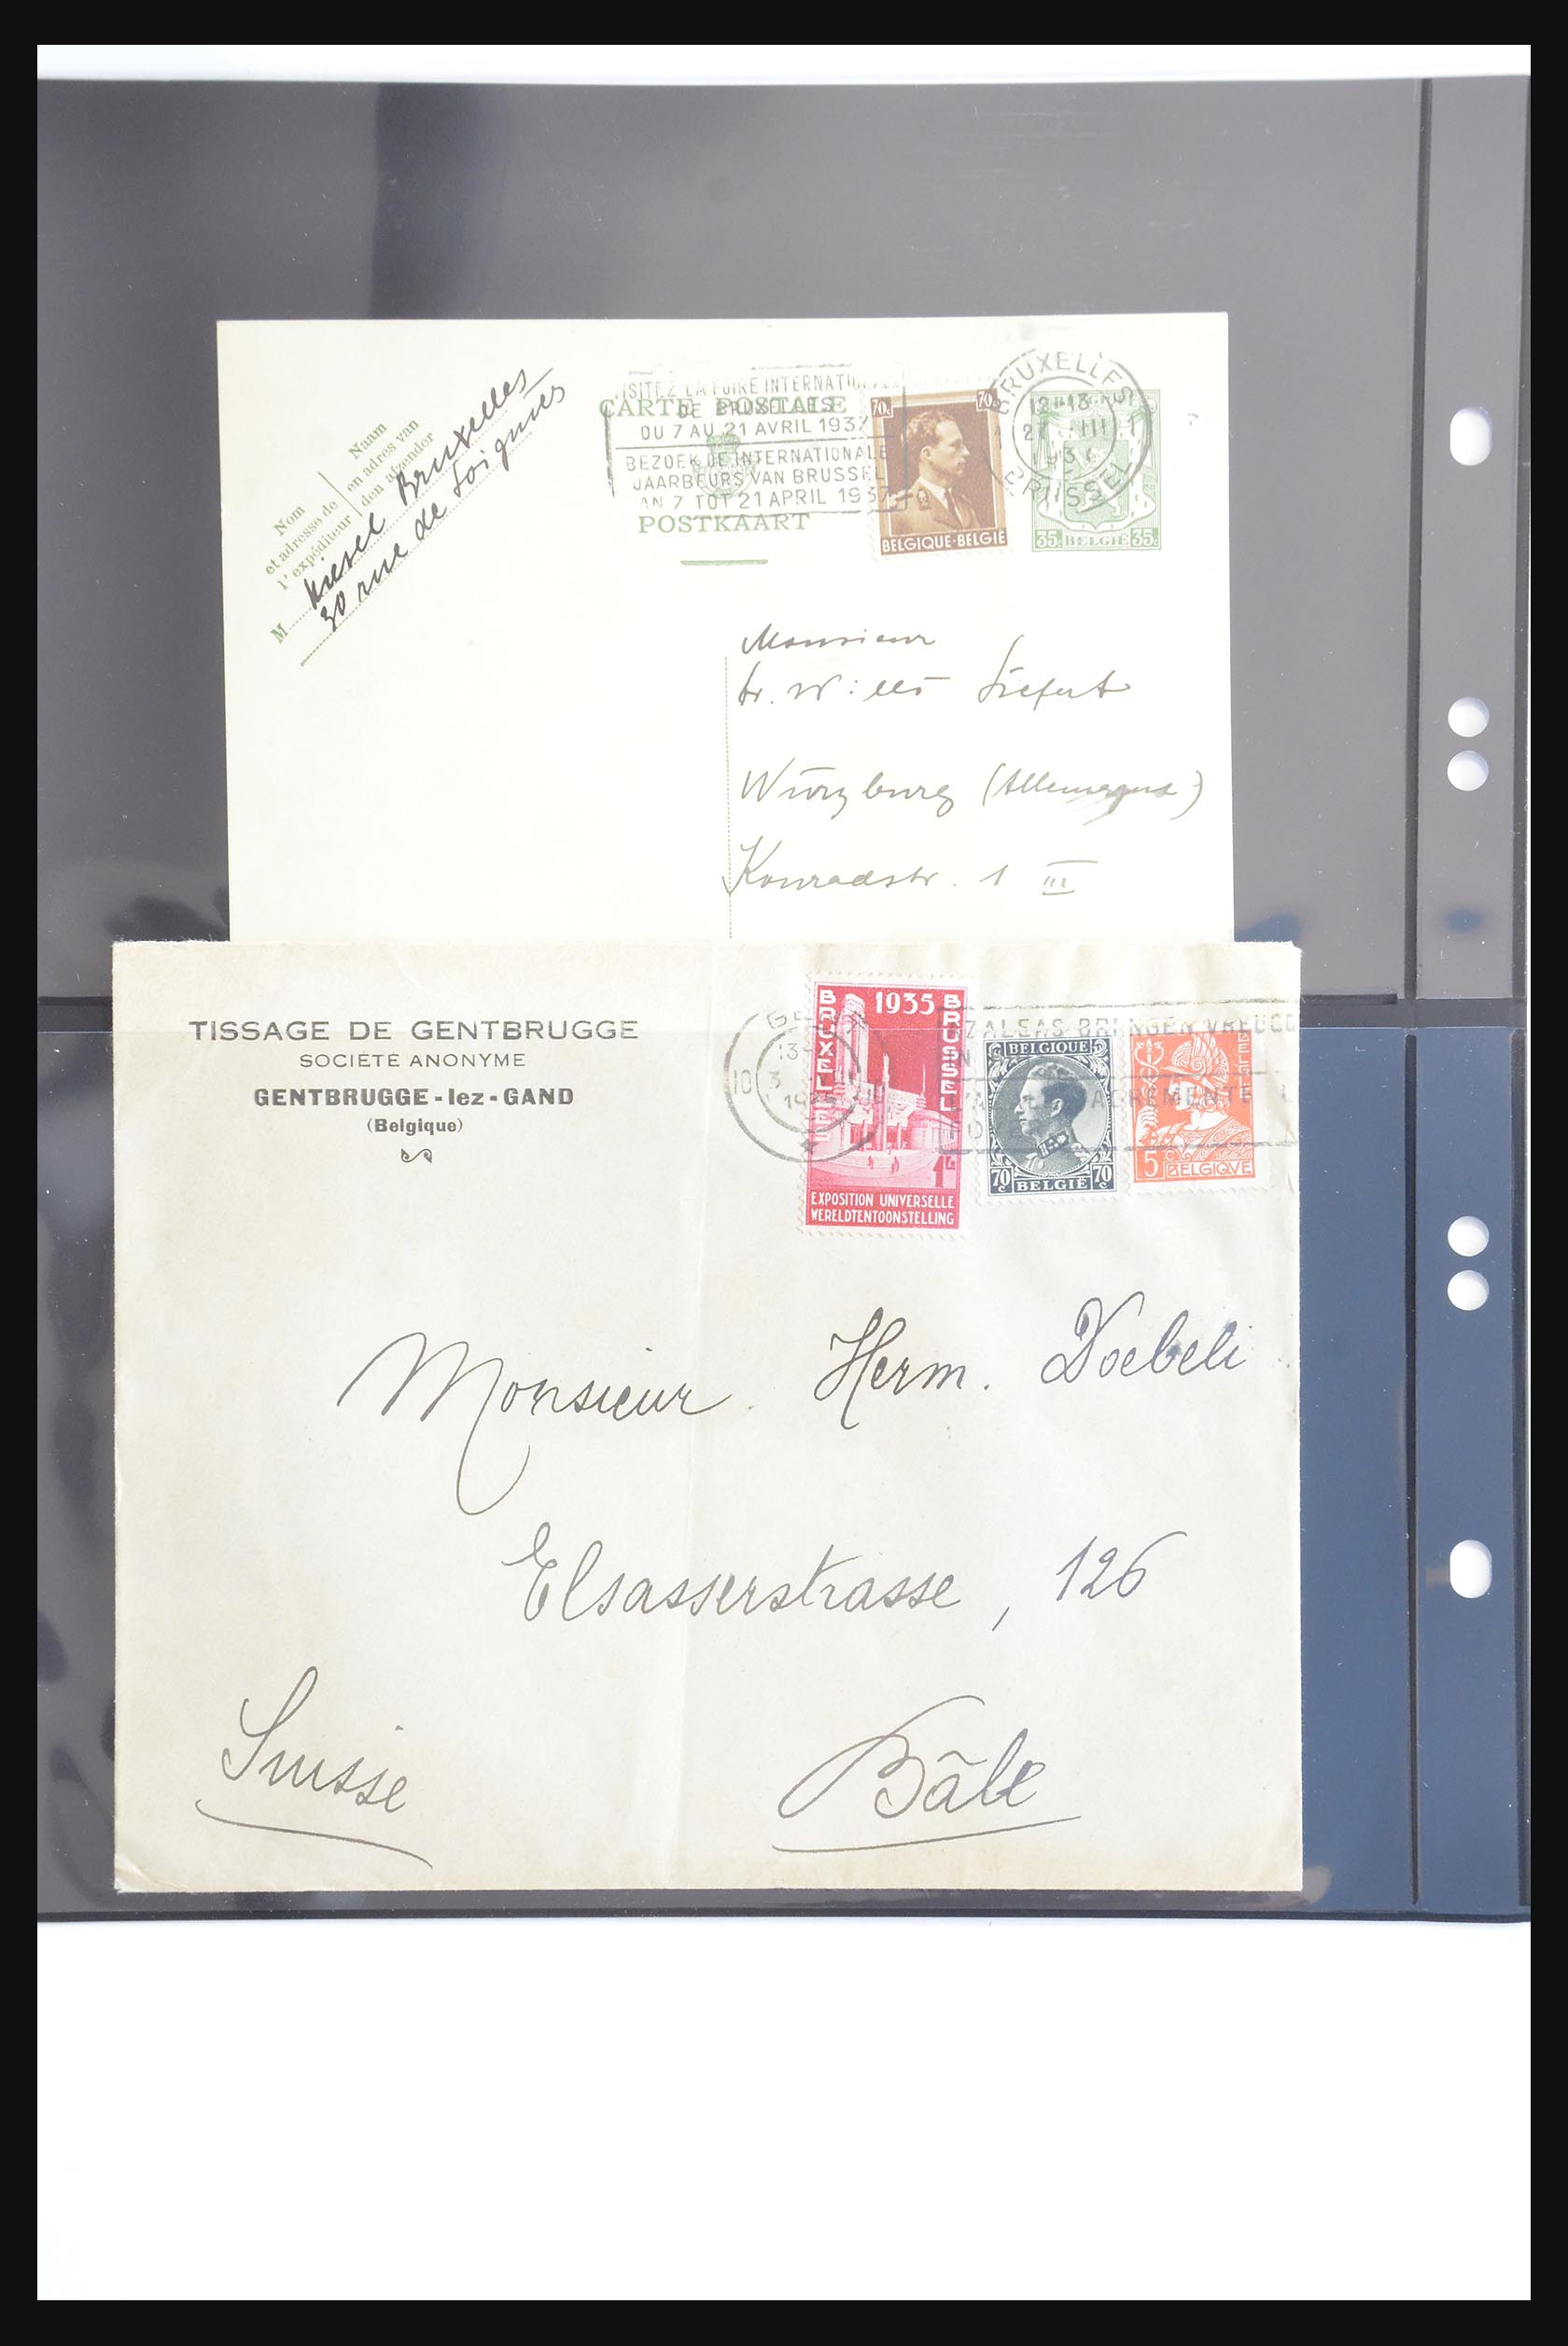 VISITEZ LA FOIRE INTERNATIONALE
DE BRUXELLES
DU 7 AU 21 AVRIL 1937
BEZOEK DE INTERNATIONALE
JAARBEURS VAN BRUSSEL
VAN 7 TOT 21 APRIL 1937
CARTE POSTALE
POSTKAART
70c 70c
BELGIQUE-BELGIË
BRUXELLES 1
12-13
27 III
BRUSSEL
35c BELGIË 35c
Nom
et adresse de
l'expéditeur
Naam
en adres van
den afzender
M
Bruxelles
30 rue de Soignies
Monsieur
Siefert
Würzburg (Allemagne)
Konradstr. 1 III
TISSAGE DE GENTBRUGGE
SOCIÉTÉ ANONYME
GENTBRUGGE-lez-GAND
(Belgique)
13-
10
AZALEAS BRINGEN VREUGD
1935
BRUXELLES
BRUSSEL
1F
EXPOSITION UNIVERSELLE
WERELDTENTOONSTELLING
BELGIQUE
70c 70c
BELGIË
BELGIË
5c
BELGIQVE
Monsieur Herm. Doebeli
Elsasserstrasse, 126
Suisse
Bâle